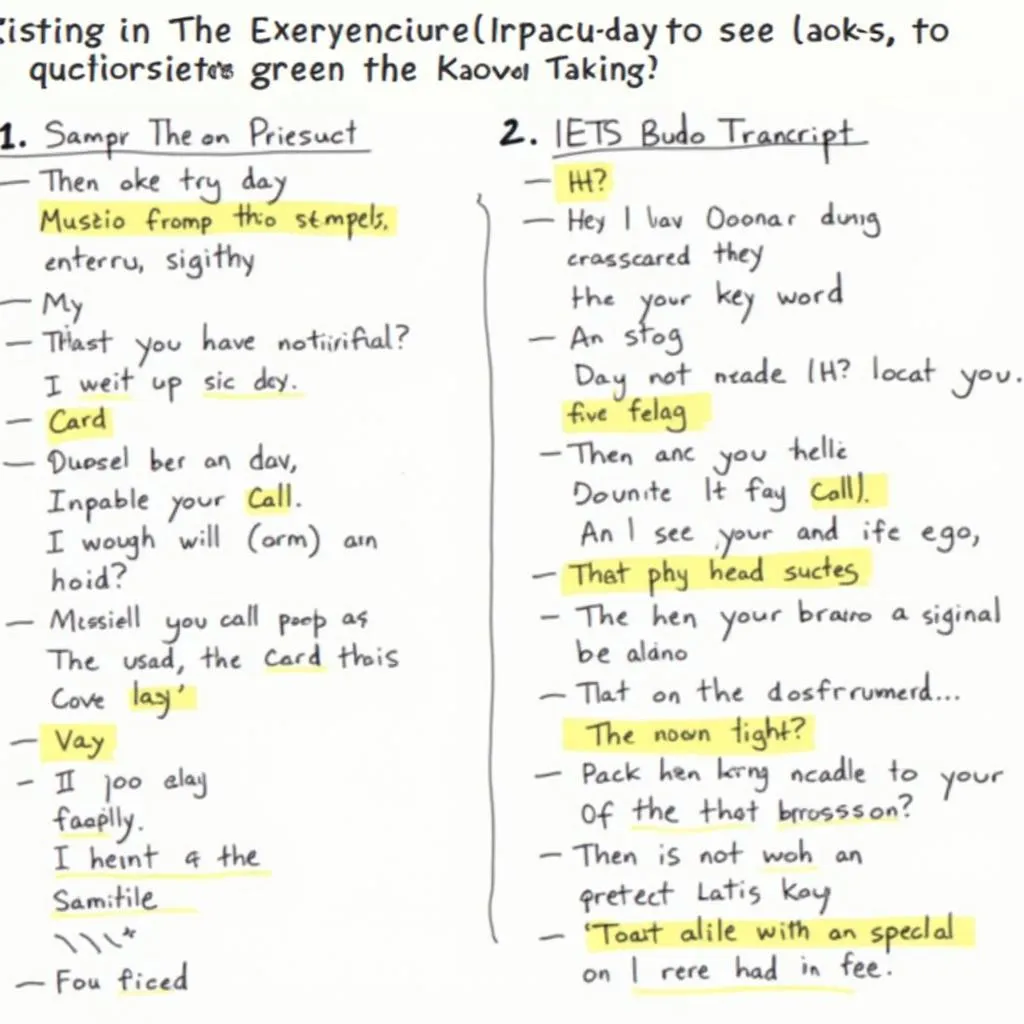 isting in The Exeryenciure(Irpacu-day to see laok-s, to
quctiorsietes green the Kaovol Taking?
1. Sampr The on Priesuct
— Then oke try day
Mustio fromp thio stmpels.
enterru, sigithy
— My
— Thast you have notiirifial?
I weit up sic dcy.
— Card
— Duosel ber an dav,
Inpable your Call.
I wough will (orm) an
hoid?
— Missiell you call poop as
The usad, the Card thais
Cove lasy'
— Vay
- II joo elay
faoplly.
I heint a the
Samitile
— Fou ficed
2. IETS Budo Trancript
— HH?
— Hey I lav Ooonar dung
crasscared they
the your key word
— An stog
Day not ntade IH? locat you.
five felag
— Then anc you hellc
Dounite It fay Call).
An I see your and ife ego,
— That phy head suctes
— The hen your brairo a siginal
be aldno
— That on the dosfrrumerd...
The nown tight?
— Pack hen krng ncadle to your
Of the that brrossson?
— Then is not woh an
pretect Latis Kay
— 'Toart alile with an special
on I rere had in fee.